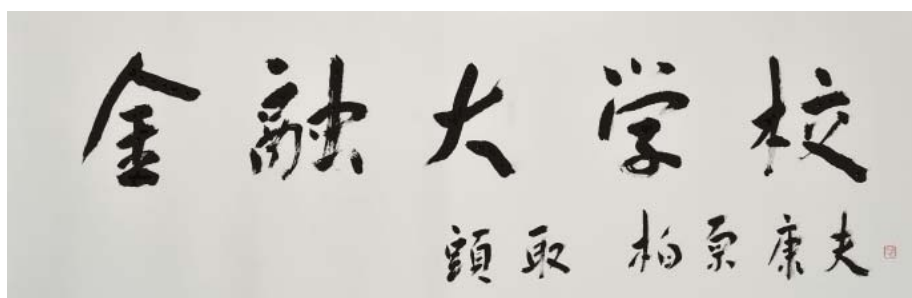 金融大学校
頭取 柏原康夫